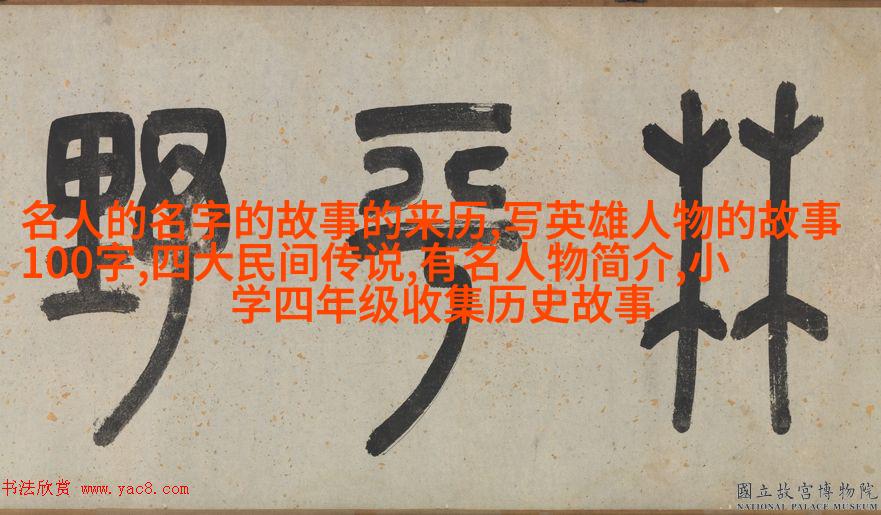 林 野
名人的名字的故事的来历,写英雄人物的故事
100字,四大民间传说,有名人物简介,小
学四年级收集历史故事
书法欣赏 www.yac8.com
國立故宮博物院
NATIONAL PALACE MUSEUM